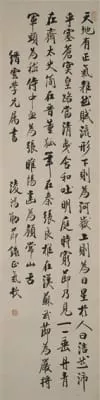 天地有正氣雜然賦流形下則為河嶽上則為日星於人曰浩然沛
乎塞蒼冥皇路當清夷含和吐明庭時窮節乃見一一垂丹青
在齊太史簡在晉董狐筆在秦張良椎在漢蘇武節為嚴將
軍頭為嵇侍中血為張睢陽齒為顏常山舌
縉雲學兄屬書
凌鴻勛節錄正氣歌